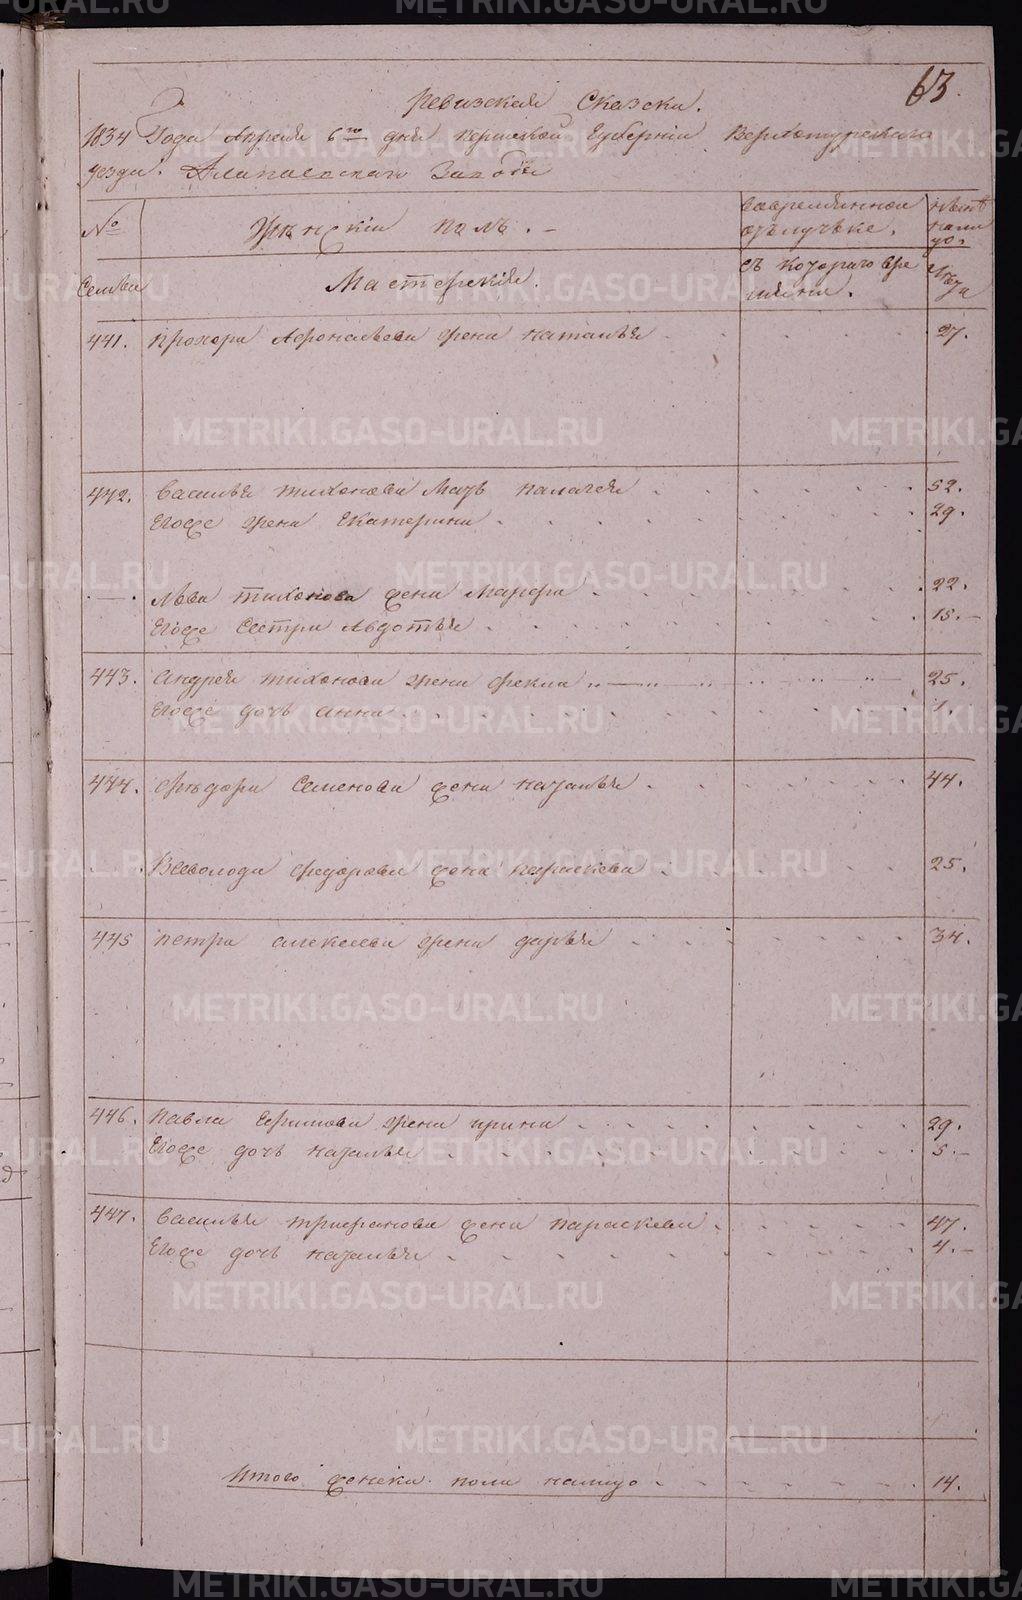 63.
Ревизская Сказска.
1834 Года Апреля 6го дня Пермской Губернiи Верхотурскаго
уезда. Алапаевскаго Завода
№
Женскiй полъ.
во временной отлучке.
Семьи
Мастерскiя.
съ котораго времяни.
Лета
441. Прохора Афонасьева жена Наталья 27.
442. Василья Тихонова Мать Палагея 52.
Егоже жена Екатерина 29.
Льва Тихонова жена Марфа 22.
Егоже Сестра Авдотья 15.
443. Андрея Тихонова жена Фекла 25.
Егоже дочь Анна 1.
444. Фѣдора Семенова жена Наталья 44.
Всеволода Федорова жена Параскева 25.
445 Петра Алексеева жена Дарья 34.
446. Павла Ефимова жена Ирина 29.
Егоже дочь Наталья 5.
447. Василья Трифанова жена Параскева 47.
Егоже дочь Наталья 4.
Итого женска пола налицо 14.
METRIKI.GASO-URAL.RU